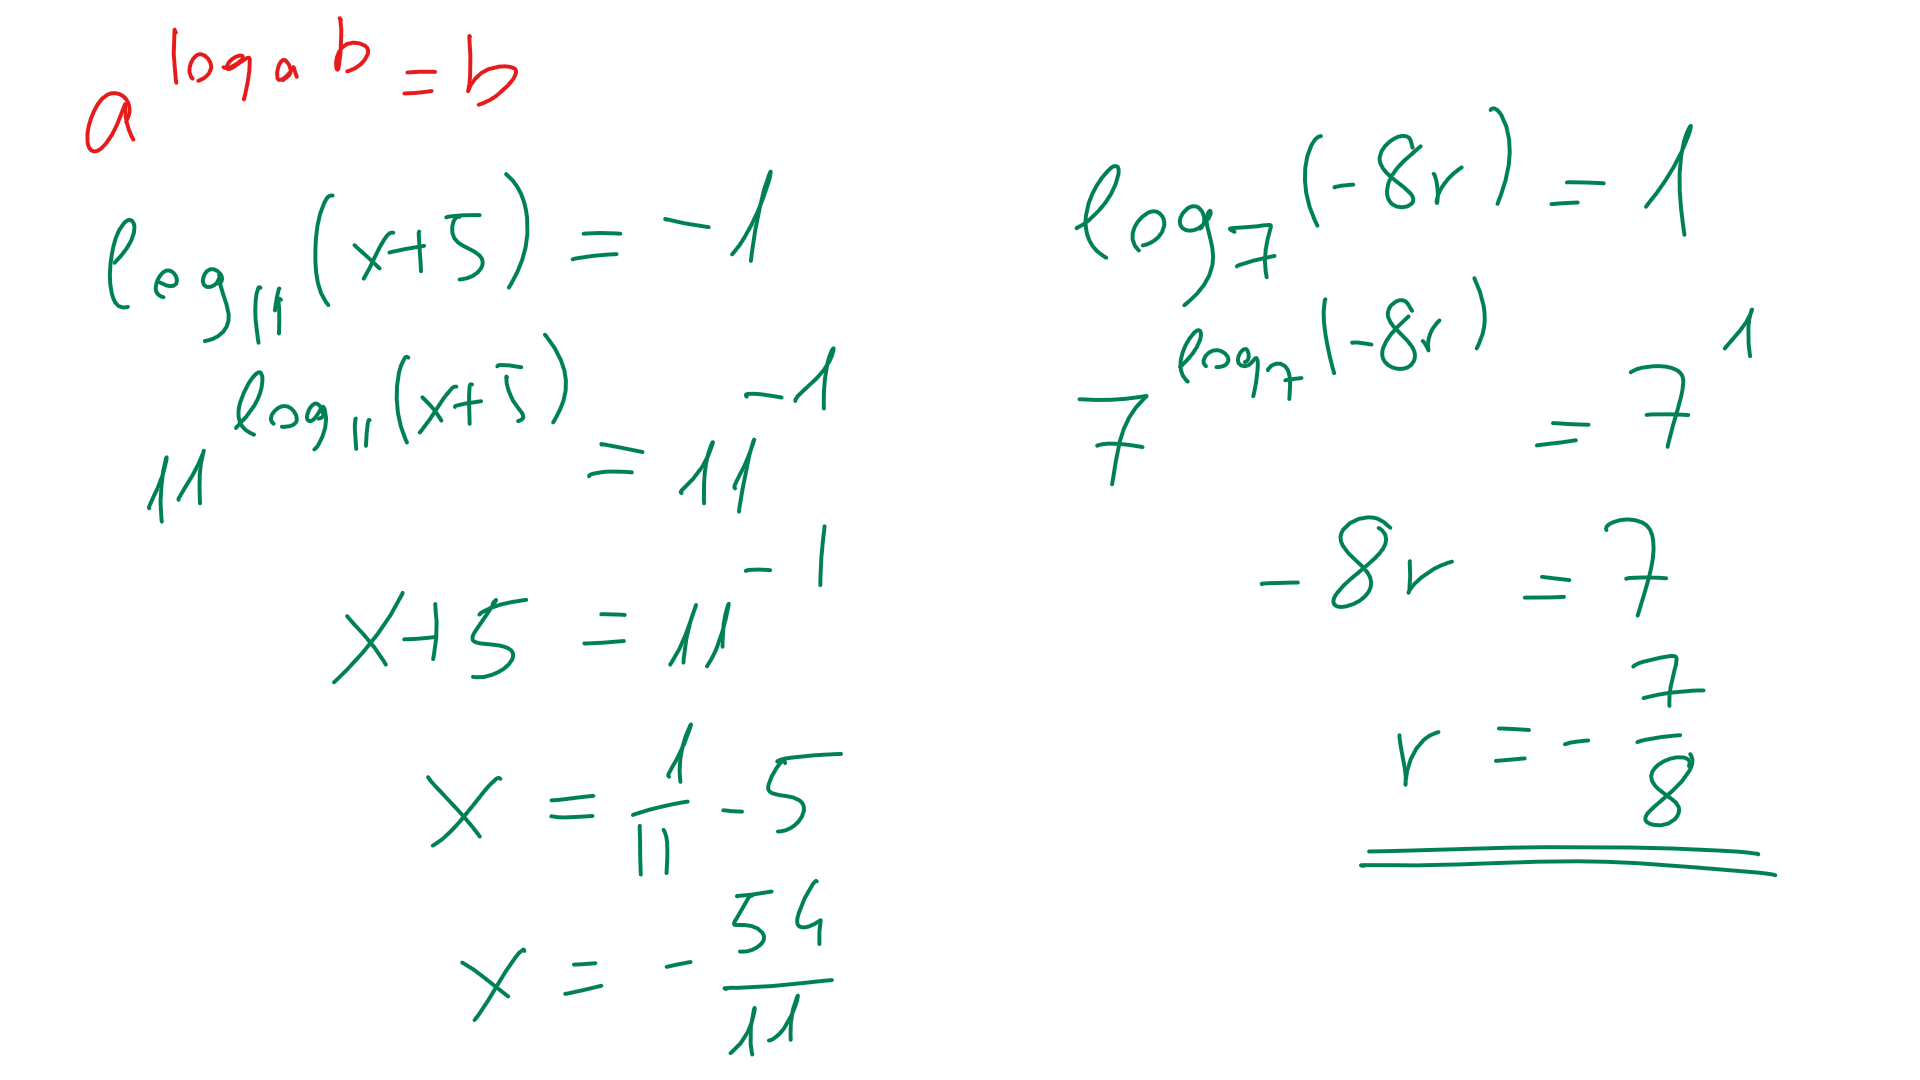 a^{log_a b} = b
log_{11}(x+5) = -1
11^{log_{11}(x+5)} = 11^{-1}
x+5 = 11^{-1}
x = \frac{1}{11} - 5
x = -\frac{54}{11}
log_7(-8r) = 1
7^{log_7(-8r)} = 7^1
-8r = 7
r = -\frac{7}{8}